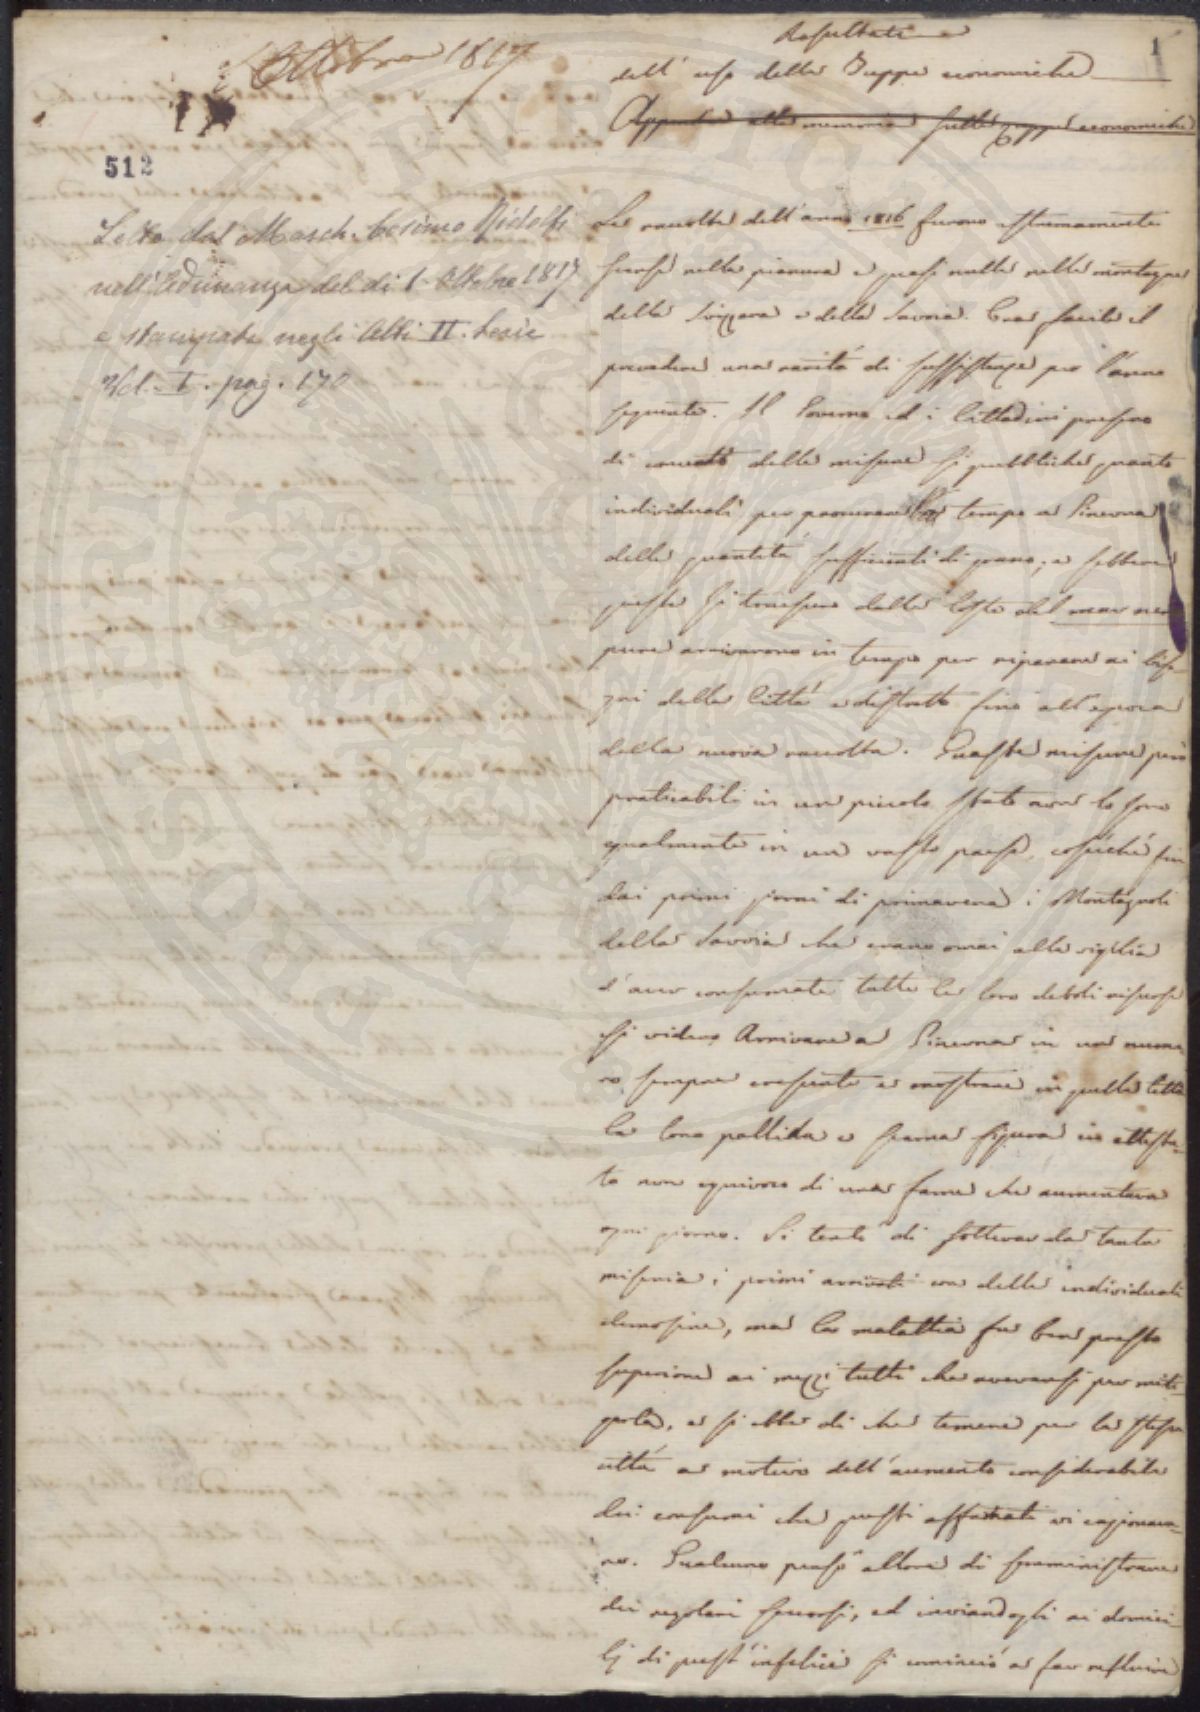 1 Ottobre 1817
512
Letta dal March. Cosimo Ridolfi
nell'Adunanza del di 1. Ottobre 1817
e stampata negli Atti II. Serie
Vol. I. pag. 170
1
Resultati
dell'uso delle Zuppe economiche
Appendice alla memoria sulle Zuppe economiche
Le raccolte dell'anno 1816 furono estremamente
scarse nella pianura e quasi nulle nelle montagne
della Svizzera e della Savoia. Era facile il
prevedere una rarità di sussistenze per l'anno
seguente. Il Governo ed i Cittadini presero
di concerto delle misure sì pubbliche quanto
individuali per procurare per tempo a Ginevra
delle quantità sufficienti di grano; e sebbene
queste si traessero dalle Coste del mar nero
pure arrivarono in tempo per riparare ai biso-
gni della Città e distretto fino all'epoca
della nuova raccolta. Queste misure però
praticabili in un piccolo stato non lo sono
egualmente in un vasto paese, cosicché fin
dai primi giorni di primavera i Montagnoli
della Savoia che erano omai alla vigilia
d'aver consumate tutte le loro deboli risorse
si videro Arrivare a Ginevra in un nume-
ro sempre crescente e mostrare in quella Città
la loro pallida e scarna figura in attesta-
to non equivoco di una fame che aumentava
ogni giorno. Si tentò di sottrar da tanta
miseria i primi arrivati con delle individuali
elemosine, ma la malattia fu ben presto
superiore ai mezzi tutti che avevansi per miti-
garla, e si ebbe di che temere per la stessa
città a motivo dell'aumento considerabile
dei consumi che questi affamati vi cagionava-
no. Qualcuno pensò allora di somministrare
dei regolari soccorsi, ed inviandogli ai domici-
lj di quest'infelici si cominciò a far refluire